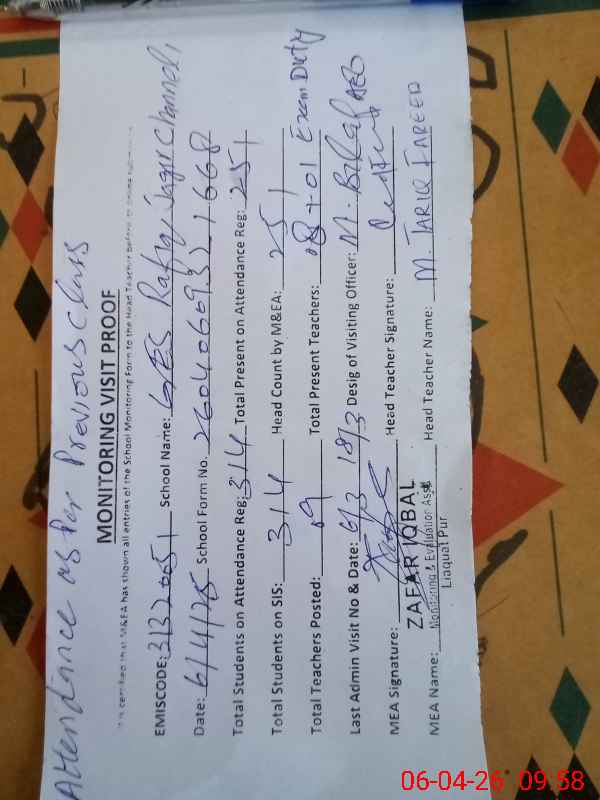 Attendance as per Previous Class
MONITORING VISIT PROOF
It is certified that M&EA has shown all entries of the School Monitoring Form to the Head Teacher before
EMISCODE: 31320051 School Name: GES Rafiq
Date: 6/4/25 School Form No. 26040609321668
Total Students on Attendance Reg: 314 Total Present on Attendance Reg: 251
Total Students on SIS: 314 Head Count by M&EA: 251
Total Teachers Posted: 09 Total Present Teachers: 08+01 Exam Duty
Last Admin Visit No & Date: 18/3 Desig of Visiting Officer: M. AEO
MEA Signature: Head Teacher Signature:
ZAFAR IQBAL
MEA Name: Monitoring & Evaluation Asst Head Teacher Name: M. TARIQ FAREED
Liaquat Pur
06-04-26 09:58